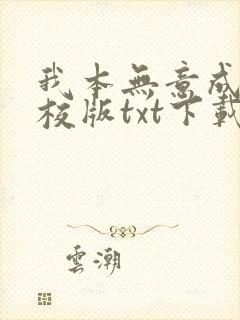 我本無意成
校版txt下載
雲潮